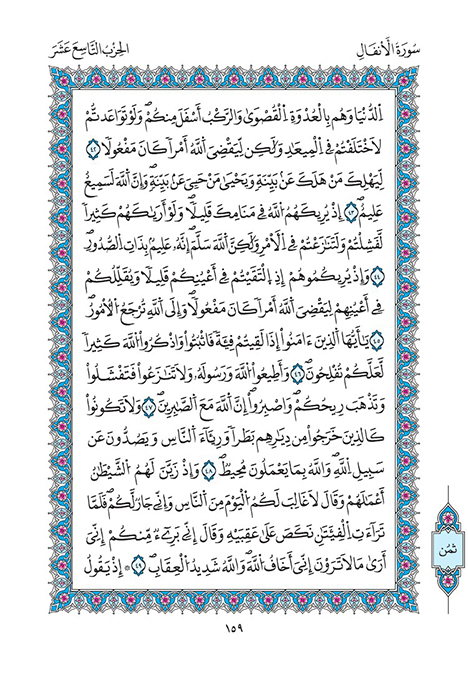 سُورَةُ الْأَنفَالِ
الحِزْبُ التَّاسِعَ عَشَرَ
اِ۬لدُّنْيَا وَهُم بِالْعُدْوَةِ اِ۬لْقُصْوَىٰ وَالرَّكْبُ أَسْفَلَ مِنكُمْ وَلَوْ تَوَاعَدتُّمْ
لَاخْتَلَفْتُمْ فِے اِ۬لْمِيعَٰدِ وَلَٰكِن لِّيَقْضِيَ اَ۬للَّهُ أَمْراٗ كَانَ مَفْعُولاٗ ٤٢
لِّيَهْلِكَ مَنْ هَلَكَ عَنۢ بَيِّنَةٖ وَيَحْيَىٰ مَنْ حَيِيَ عَنۢ بَيِّنَةٖ وَإِنَّ اَ۬للَّهَ لَسَمِيعٌ
عَلِيمٌ ٤٣ إِذْ يُرِيكَهُمُ اُ۬للَّهُ فِے مَنَامِكَ قَلِيلاٗ وَلَوْ أَرَىٰكَهُمْ كَثِيراٗ
لَّفَشِلْتُمْ وَلَتَنَٰزَعْتُمْ فِے اِ۬لْأَمْرِ وَلَٰكِنَّ اَ۬للَّهَ سَلَّمَ إِنَّهُۥ عَلِيمٌۢ بِذَاتِ اِ۬لصُّدُورِ
٤٤ وَإِذْ يُرِيكُمُوهُمْ إِذِ اِ۬لْتَقَيْتُمْ فِے أَعْيُنِكُمْ قَلِيلاٗ وَيُقَلِّلُكُمْ
فِے أَعْيُنِهِمْ لِيَقْضِيَ اَ۬للَّهُ أَمْراٗ كَانَ مَفْعُولاٗ وَإِلَى اَ۬للَّهِ تُرْجَعُ اُ۬لْأُمُورُ
٤٥ يَٰٓأَيُّهَا اَ۬لذِينَ ءَامَنُوٓاْ إِذَا لَقِيتُمْ فِئَةٗ فَاثْبُتُواْ وَاذْكُرُواْ اُ۬للَّهَ كَثِيراٗ
لَّعَلَّكُمْ تُفْلِحُونَ ٤٦ وَأَطِيعُواْ اُ۬للَّهَ وَرَسُولَهُۥ وَلَا تَنَٰزَعُواْ فَتَفْشَلُواْ
وَتَذْهَبَ رِيحُكُمْ وَاصْبِرُوٓاْ إِنَّ اَ۬للَّهَ مَعَ اَ۬لصَّٰبِرِينَ ٤٧ وَلَا تَكُونُواْ
كَالذِينَ خَرَجُواْ مِن دِيٰ۪رِهِم بَطَراٗ وَرِئَآءَ اَ۬لنَّاسِ وَيَصُدُّونَ عَن
سَبِيلِ اِ۬للَّهِ وَاللَّهُ بِمَا يَعْمَلُونَ مُحِيطٌ ٤٨ وَإِذْ زَيَّنَ لَهُمُ اُ۬لشَّيْطَٰنُ
أَعْمَٰلَهُمْ وَقَالَ لَا غَالِبَ لَكُمُ اُ۬لْيَوْمَ مِنَ اَ۬لنَّاسِ وَإِنِّے جَارٌ لَّكُمْ فَلَمَّا
تَرَآءَتِ اِ۬لْفِئَتَٰنِ نَكَصَ عَلَىٰ عَقِبَيْهِ وَقَالَ إِنِّے بَرِےٓءٌ مِّنكُمْ إِنِّيَ
أَرَىٰ مَا لَا تَرَوْنَ إِنِّيَ أَخَافُ اُ۬للَّهَ وَاللَّهُ شَدِيدُ اُ۬لْعِقَابِ ٤٩ ۞ إِذْ يَقُولُ
ثُمُن
١٥٩